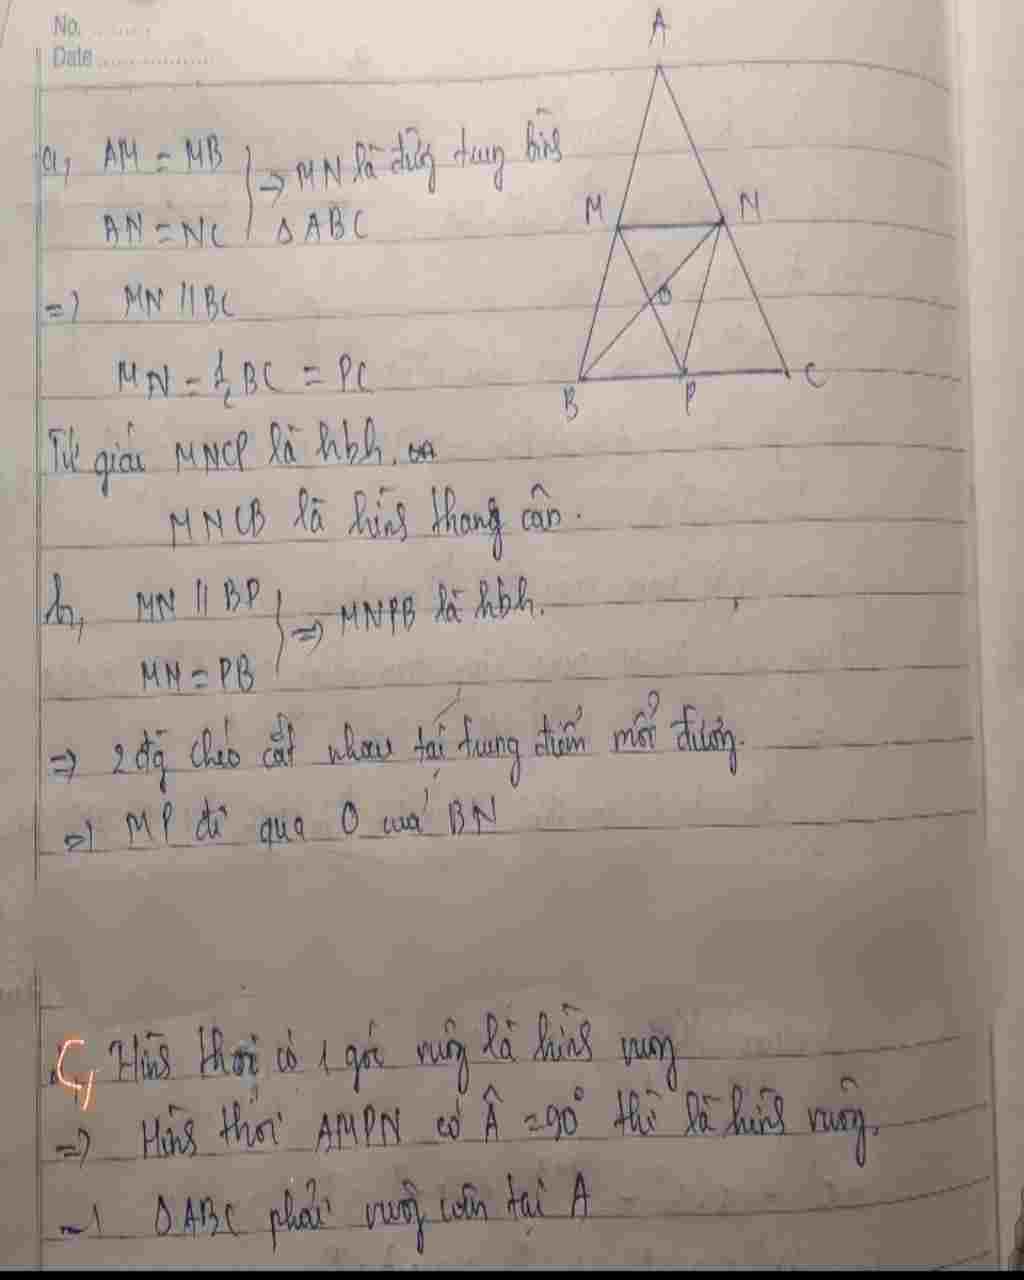 No. ........
Date ................
A
a, AM = MB
AN = NC
=> MN là đường trung bình
Δ ABC
M N
=> MN // BC
O
MN = 1/2 BC = PC
B P C
Tứ giác MNCP là hbh.
MNCB là hình thang cân.
b, MN // BP
MN = PB
=> MNPB là hbh.
=> 2 đg chéo cắt nhau tại trung điểm mỗi đường.
=> MP đi qua O của BN
C, Hình thoi có 1 góc vuông là hình vuông
=> Hình thoi AMPN có Â = 90° thì là hình vuông.
=> Δ ABC phải vuông cân tại A